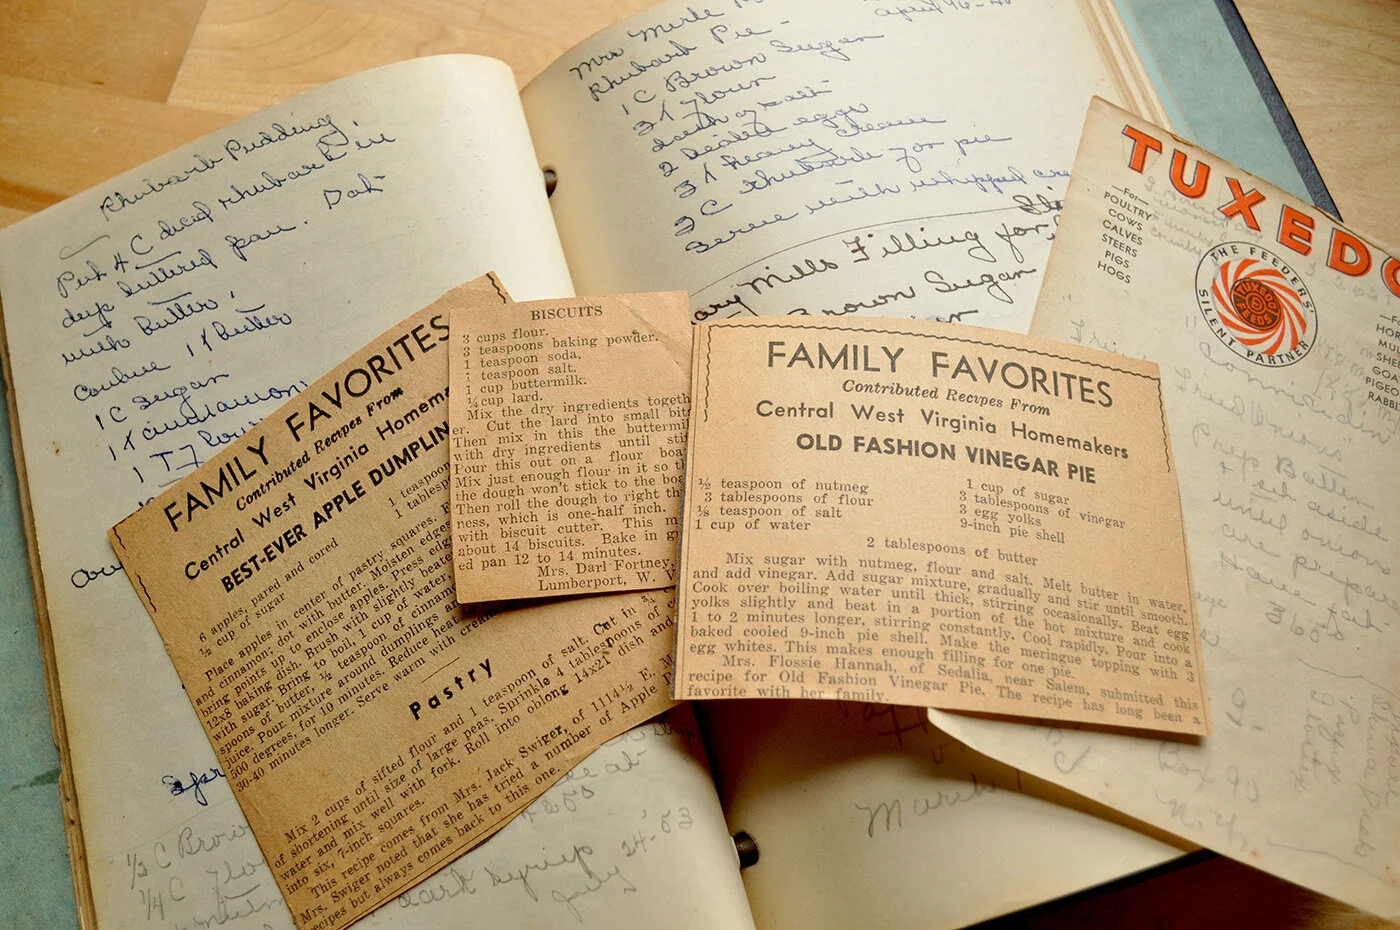 Rhubarb Pudding
Put 4 C diced rhubarb in
deep buttered pan. Dot
with butter.
Combine 1 T butter
1 C Sugar
1 t cinnamon
1 T flour
Mrs Merle
April
Rhubarb Pie
1 C Brown Sugar
3 T Flour
dash of salt
2 beaten eggs
3 T heavy cream
3 C rhubarb for pie
Serve with whipped
Mary Mills Filling for
Brown Sugar
FAMILY FAVORITES
Contributed Recipes From
Central West Virginia Homem
BEST-EVER APPLE DUMPLIN
6 apples, pared and cored
½ cup of sugar
1 teaspoon
1 tablesp
Place apples in center of pastry squares.
and cinnamon; dot with butter. Moisten edges
bring points up to enclose apples. Press edg
12x8 baking dish. Brush with slightly beate
with sugar. Bring to boil, 1 cup of water,
spoons of butter, ½ teaspoon of cinnam
juice. Pour mixture around dumplings and
500 degrees, for 10 minutes. Reduce heat
30-40 minutes longer. Serve warm with crea
Pastry
Mix 2 cups of sifted flour and 1 teaspoon of salt. Cut in
of shortening until size of large peas. Sprinkle 4 tablespoons of
water and mix well with fork. Roll into oblong 14x21
into six, 7-inch squares.
This recipe comes from Mrs. Jack Swiger, of 1114½ E. M
Mrs. Swiger noted that she has tried a number of Apple D
recipes but always comes back to this one.
BISCUITS
3 cups flour.
3 teaspoons baking powder.
1 teaspoon soda.
teaspoon salt.
1 cup buttermilk.
¼ cup lard.
Mix the dry ingredients togeth
er. Cut the lard into small bit
Then mix in this the buttermil
with dry ingredients until stif
Pour this out on a flour boa
Mix just enough flour in it so th
the dough won't stick to the boa
Then roll the dough to right th
ness, which is one-half inch.
with biscuit cutter. This m
about 14 biscuits. Bake in g
ed pan 12 to 14 minutes.
Mrs. Darl Fortney,
Lumberport, W. V
FAMILY FAVORITES
Contributed Recipes From
Central West Virginia Homemakers
OLD FASHION VINEGAR PIE
½ teaspoon of nutmeg
3 tablespoons of flour
⅛ teaspoon of salt
1 cup of water
1 cup of sugar
3 tablespoons of vinegar
3 egg yolks
9-inch pie shell
2 tablespoons of butter
Mix sugar with nutmeg, flour and salt. Melt butter in water,
and add vinegar. Add sugar mixture, gradually and stir until smooth.
Cook over boiling water until thick, stirring occasionally. Beat egg
yolks slightly and beat in a portion of the hot mixture and cook
1 to 2 minutes longer, stirring constantly. Cool rapidly. Pour into a
baked cooled 9-inch pie shell. Make the meringue topping with 3
egg whites. This makes enough filling for one pie.
Mrs. Flossie Hannah, of Sedalia, near Salem, submitted this
recipe for Old Fashion Vinegar Pie. The recipe has long been a
favorite with her family.
TUXEDO
—For—
POULTRY
COWS
CALVES
STEERS
PIGS
HOGS
THE FEEDERS'
SILENT PARTNER
TUXEDO
FEEDS
HOR
MUL
SHEE
GOA
PIGEO
RABBI
Prep Batter
& set aside
until onions
are prepare
Have fat
360°
Box 90
March
1/3 C Brown
1/4 C Flou
dark syrup
July 24-53